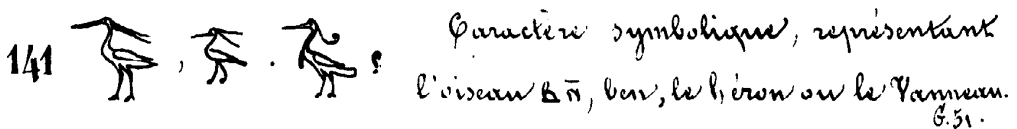 141 , . : Caractère symbolique, représentant
l'oiseau ⲃⲛ̄, ben, le héron ou le Vanneau.
G. 51.